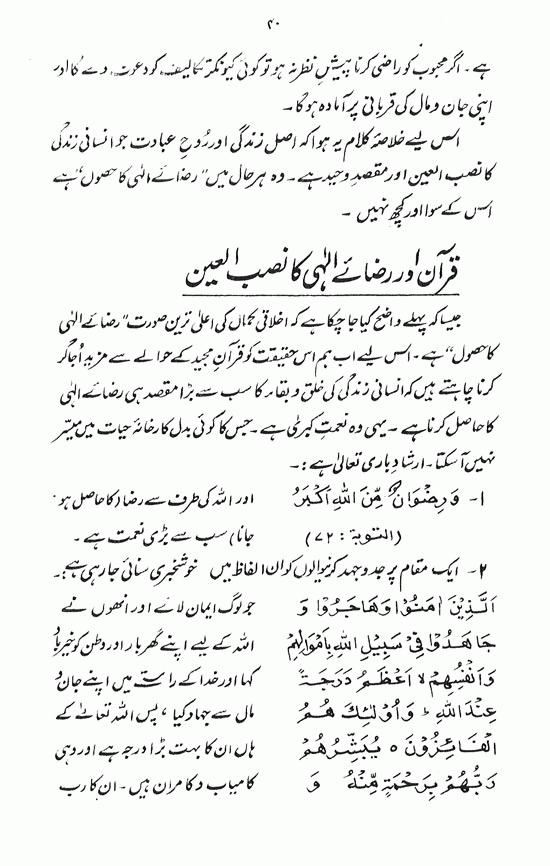 ۴۰
ہے۔ اگر محبوب کو راضی کرنا پیشِ نظر نہ ہو تو کوئی کیونکر تکالیف کو دعوت دے گا اور
اپنی جان و مال کی قربانی پر آمادہ ہوگا۔
اس لیے خلاصۂ کلام یہ ہوا کہ اصل زندگی اور رُوحِ عبادت جو انسانی زندگی
کا نصب العین اور مقصدِ وحید ہے۔ وہ ہر حال میں "رضائے الٰہی کا حصول" ہے
اس کے سوا اور کچھ نہیں۔
قرآن اور رضائے الٰہی کا نصب العین
جیسا کہ پہلے واضح کیا جا چکا ہے کہ اخلاقی کمال کی اعلیٰ ترین صورت "رضائے الٰہی
کا حصول" ہے۔ اس لیے اب ہم اس حقیقت کو قرآنِ مجید کے حوالے سے مزید اُجاگر
کرنا چاہتے ہیں کہ انسانی زندگی کی خلق و بقاء کا سب سے بڑا مقصد ہی رضائے الٰہی
کا حاصل کرنا ہے۔ یہی وہ نعمتِ کبریٰ ہے۔ جس کا کوئی بدل کارخانۂ حیات میں میسّر
نہیں آ سکتا۔ ارشادِ باری تعالیٰ ہے :۔
۱۔ وَرِضْوَانٌ مِّنَ اللّٰهِ اَكْبَرُ اور اللہ کی طرف سے رضا (کا حاصل ہو
(التوبۃ : ۷۲) جانا) سب سے بڑی نعمت ہے۔
۲۔ ایک مقام پر جدوجہد کرنیوالوں کو ان الفاظ میں خوشخبری سنائی جا رہی ہے :۔
اَلَّذِيْنَ اٰمَنُوْا وَهَاجَرُوْا وَ جو لوگ ایمان لائے اور انھوں نے
جَاهَدُوْا فِيْ سَبِيْلِ اللّٰهِ بِاَمْوَالِهِمْ اللہ کے لیے اپنے گھر بار اور وطن کو خیرباد
وَاَنْفُسِهِمْ لا اَعْظَمُ دَرَجَةً کہا اور خدا کے راستے میں اپنے جان و
عِنْدَ اللّٰهِ ط وَاُولٰٓئِكَ هُمُ مال سے جہاد کیا، پس اللہ تعالےٰ کے
الْفَائِزُوْنَ ه يُبَشِّرُهُمْ ہاں ان کا بہت بڑا درجہ ہے اور وہی
رَبُّهُمْ بِرَحْمَةٍ مِّنْهُ وَ کامیاب و کامران ہیں۔ ان کا رب